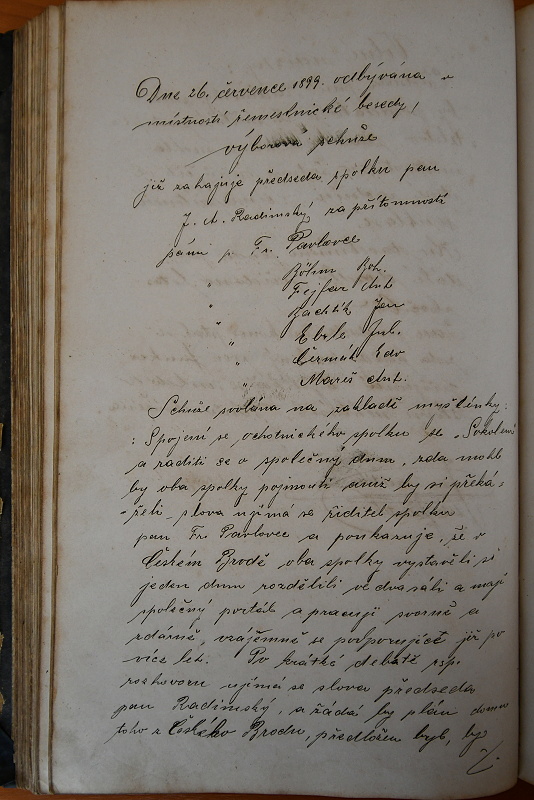 Dne 26. července 1899. odbývána v
místnosti řemeslnické besedy,
výborová schůze
již zahajuje předseda spolku pan
J. A. Radimský za přítomnosti
pánů p. Fr. Pavlovce
" Böhm Boh.
" Fejfar Ant
" Jan
" Eberle Jul.
" Čermák Edv
" Mareš Ant.
Schůze svolána na zakladě myšlénky:
: Spojení se ochotnického spolku se „Sokolem"
a raditi se o společný dum, zda mohl
by oba spolky pojmouti aniž by si překá-
-želi, slova ujímá se řiditel spolku
pan Fr. Pavlovec a poukazuje, že v
Českém Brodě oba spolky vystavěli si
jeden dum rozdělili ve dva sáli a mají
společný portál a pracují svorně a
zdárně, vzájemně se podporujíce již po
více let. Po krátké debatě rsp.
rozhovoru ujímá se slova předseda
pan Radimský, a žádá by plán domu
toho z Českého Brodu, předložen byl, by